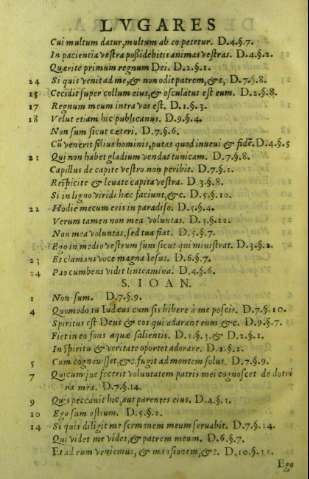 LVGARES
Cui multum datur, multum ab eo petetur. D.4.§.7.
In pacientia vestra possidebitis animas vestras. D.4.§.2.
Quærite primum regnum Dei. D.2.§.1.
24 Si quis venit ad me, & non odit patrem, &c, D.7.§.8.
15 Cecidit super collum eius, & osculatus est eum. D.2.§.8.
17 Regnum meum intra vos est. D.1.§.3.
18 Velut etiam hic publicanus. D.9.§.4.
Non sum sicut cæteri. D.7.§.6.
Cũ venerit filius hominis, putas quod inueni & fidẽ. D.4.§.5
21 Qui non habet gladium vendat tunicam. D.7.§.8.
Capillus de capite vestro non peribit. D.7.§.1.
Respicite & leuate capita vestra. D.3.§.8.
Si in ligno viridi hæc faciunt, &c. D.5.§.10.
22 Hodie mecum eris in paradiso. D.5.§.4.
Verum tamen non mea voluntas. D.3.§.12.
Non mea voluntas, sed tua fiat. D.5.§.7.
Ego in medio vestrum sum sicut qui ministrat. D.3.§.2.
23 Et clamans voce magna Iesus. D.6.§.7.
24 Procumbens vidit linteamina. D.4.§.6.
S. IOAN.
1 Non sum. D.7.§.9.
4 Quomodo tu Iudeus cum sis bibere à me poscis. D.7.§.10.
Spiritus est Deus & eos qui adorant eum &c. D.9.§.7.
Fiet in eo fons aquæ salientis. D.1.§.3. & D.2.§.1.
In spiritu & veritate oportet adorare. D.1.§.2.
5 Cum cognouisset, &c. fugit ad montem solus. D.7.§.9.
7 Quicumque fecerit voluntatem patris mei cognoscet de doctri
na mea. D.7.§.14.
9 Quis peccauit hic, aut parentes eius. D.4.§.1.
10 Ego sum ostium. D.5.§.2.
14 Si quis diligit me sermonem meum seruabit. D.7.§.14.
Qui videt me videt, & patrem meum. D.6.§.7.
Et ad eum veniemus, & mansionem, &c. D.10.§.11.
Ego